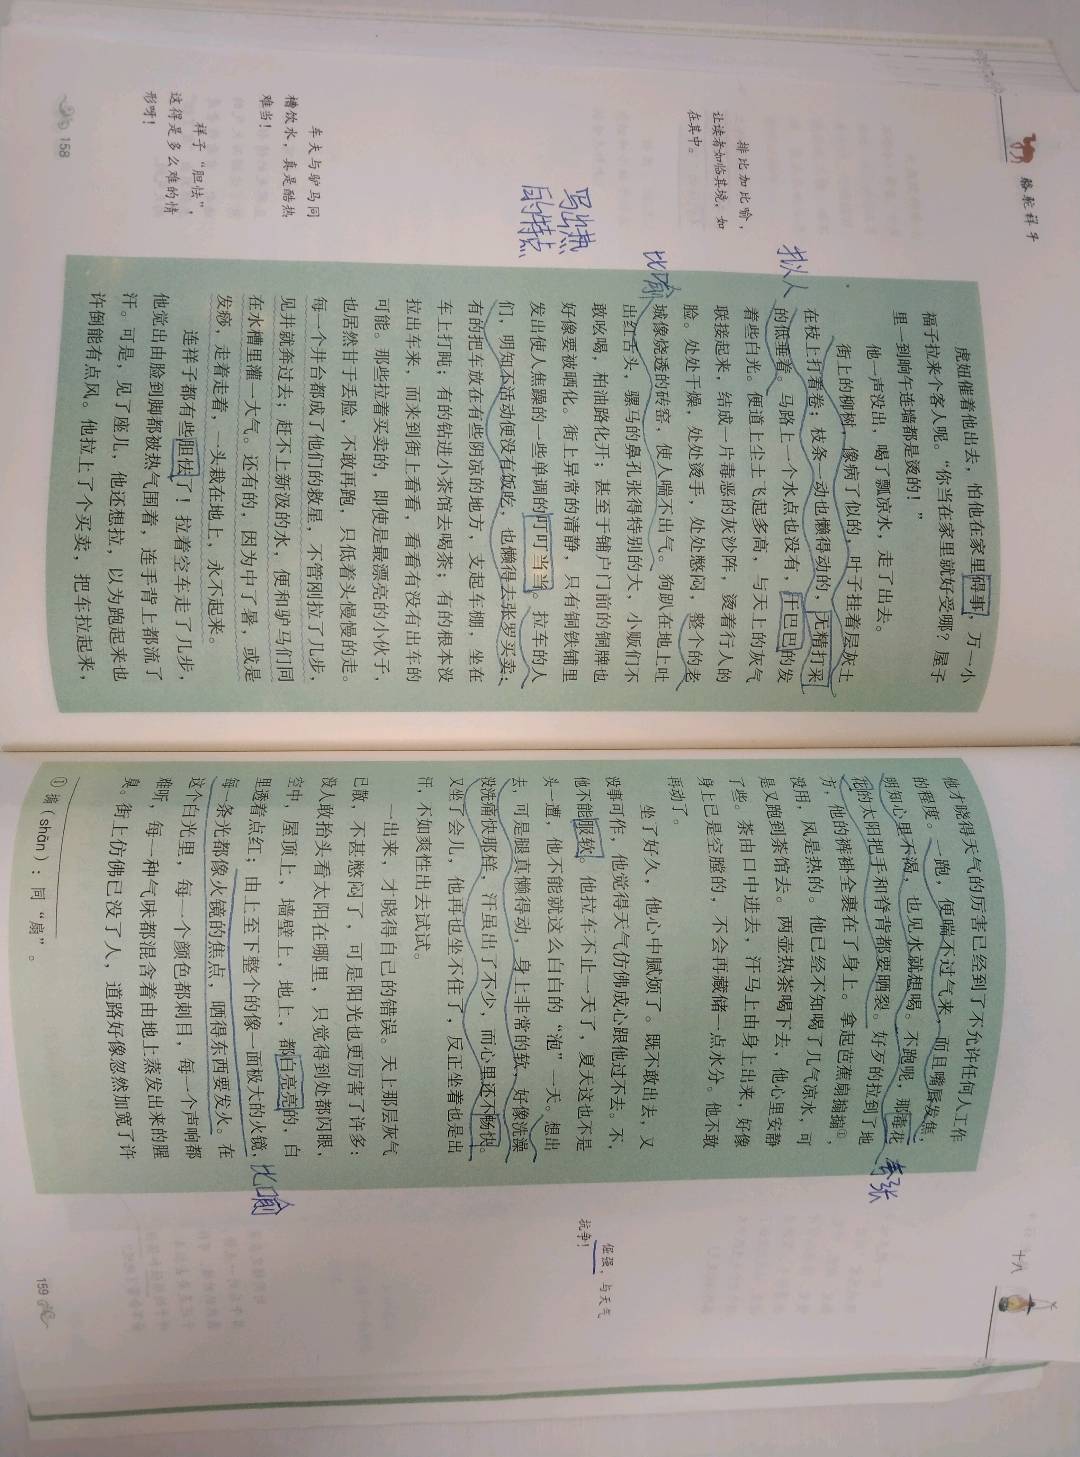 骆驼祥子
虎妞催着他出去，怕他在家里碍事，万一小
福子拉来个客人呢。“你当在家里就好受哪？屋子
里一到晌午连墙都是烫的！”
他一声没出，喝了瓢凉水，走了出去。
街上的柳树，像病了似的，叶子挂着层灰土
在枝上打着卷；枝条一动也懒得动的，无精打采
的低垂着。马路上一个水点也没有，干巴巴的发
着些白光。便道上尘土飞起多高，与天上的灰气
联接起来，结成一片毒恶的灰沙阵，烫着行人的
脸。处处干燥，处处烫手，处处憋闷，整个的老
城像烧透的砖窑，使人喘不出气。狗趴在地上吐
出红舌头，骡马的鼻孔张得特别的大，小贩们不
敢吆喝，柏油路化开；甚至于铺户门前的铜牌也
好像要被晒化。街上异常的清静，只有铜铁铺里
发出使人焦躁的一些单调的叮叮当当。拉车的人
们，明知不活动便没有饭吃，也懒得去张罗买卖：
有的把车放在有些阴凉的地方，支起车棚，坐在
车上打盹；有的钻进小茶馆去喝茶；有的根本没
拉出车来，而来到街上看看，看看有没有出车的
可能。那些拉着买卖的，即使是最漂亮的小伙子，
也居然甘于丢脸，不敢再跑，只低着头慢慢的走。
每一个井台都成了他们的救星，不管刚拉了几步，
见井就奔过去；赶不上新汲的水，便和驴马们同
在水槽里灌一大气。还有的，因为中了暑，或是
发痧，走着走着，一头栽在地上，永不起来。
连祥子都有些胆怯了！拉着空车走了几步，
他觉出由脸到脚都被热气围着，连手背上都流了
汗。可是，见了座儿，他还想拉，以为跑起来也
许倒能有点风。他拉上了个买卖，把车拉起来，
拟人
比喻
写出热
的特点
排比加比喻，
让读者如临其境，如
在其中。
车夫与驴马同
槽饮水，真是酷热
难当！
祥子“胆怯”，
这得是多么难的情
形呀！
158
十八
他才晓得天气的厉害已经到了不允许任何人工作
的程度。一跑，便喘不过气来，而且嘴唇发焦，
明知心里不渴，也见水就想喝。不跑呢，那毒花
花的太阳把手和脊背都要晒裂。好歹的拉到了地
方，他的裤褂全裹在了身上。拿起芭蕉扇搧搧①，
没用，风是热的。他已经不知喝了几气凉水，可
是又跑到茶馆去。两壶热茶喝下去，他心里安静
了些。茶由口中进去，汗马上由身上出来，好像
身上已是空膛的，不会再藏储一点水分。他不敢
再动了。
坐了好久，他心中腻烦了。既不敢出去，又
没事可作，他觉得天气仿佛成心跟他过不去。不，
他不能服软。他拉车不止一天了，夏天这也不是
头一遭，他不能就这么白白的“泡”一天。想出
去，可是腿真懒得动，身上非常的软，好像洗澡
没洗痛快那样，汗虽出了不少，而心里还不畅快。
又坐了会儿，他再也坐不住了，反正坐着也是出
汗，不如爽性出去试试。
一出来，才晓得自己的错误。天上那层灰气
已散，不甚憋闷了，可是阳光也更厉害了许多：
没人敢抬头看太阳在哪里，只觉得到处都闪眼，
空中，屋顶上，墙壁上，地上，都白亮亮的，白
里透着点红；由上至下整个的像一面极大的火镜，
每一条光都像火镜的焦点，晒得东西要发火。在
这个白光里，每一个颜色都刺目，每一个声响都
难听，每一种气味都混含着由地上蒸发出来的腥
臭。街上仿佛已没了人，道路好像忽然加宽了许
夸张
比喻
倔强，与天气
抗争！
①搧（shān）：同“扇”。
159